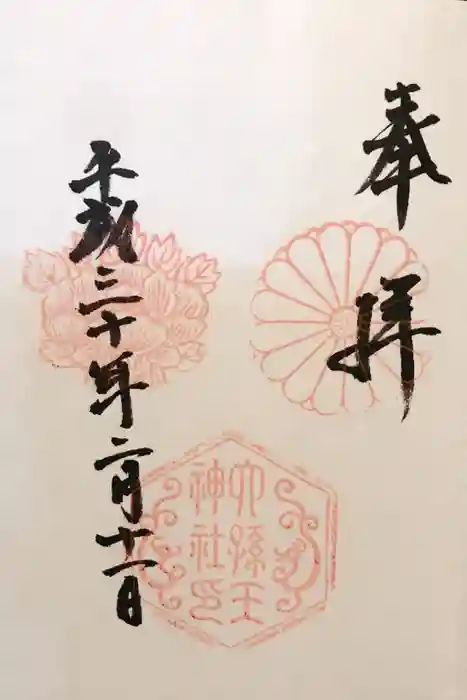 奉拝
六孫王
神社印
平成三十年二月十一日